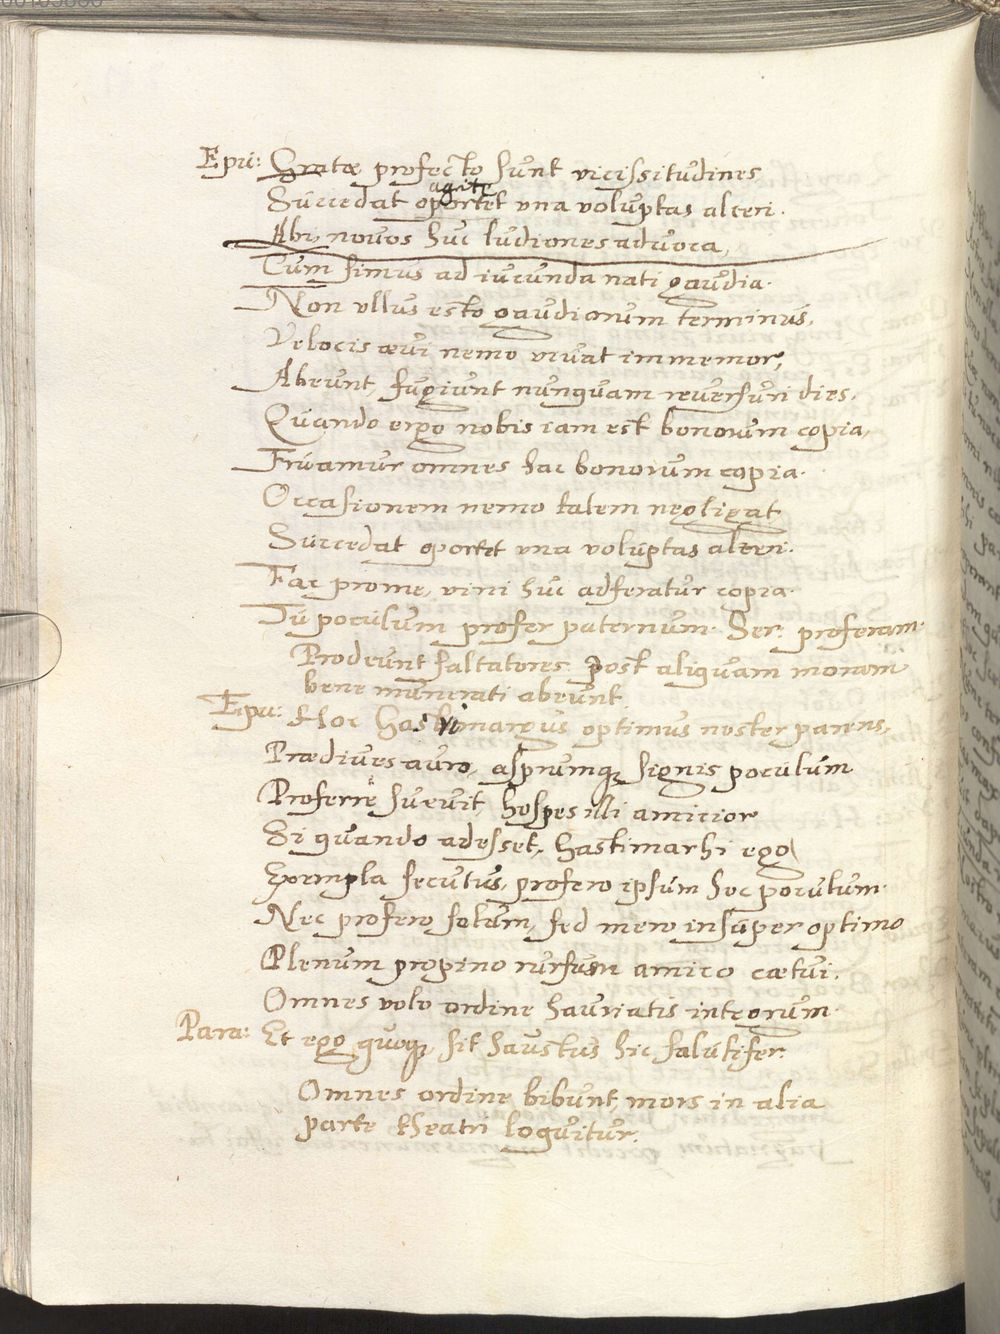 Epu: Gratæ profecto sunt vicissitudines
agite
Succedat oportet vna voluptas alteri.
Abi, novos huc ludiones advoca,
Cum simus ad iucunda nati gaudia.
Non vllus esto gaudiorum terminus,
Velocis ævi nemo vivat immemor,
Abeunt, fugiunt nunquam reversuri dies.
Quando ergo nobis iam est bonorum copia,
Fruamur omnes hac bonorum copia.
Occasionem nemo talem negligat
Succedat oportet vna voluptas alteri.
Fac prome, vini huc adferatur copia.
Tu poculum profer paternum. Ser: proferam.
Prodeunt saltatores post aliquam moram
bene munerati abeunt.
Epu: Hoc optimus noster parens,
Prædives auro, asprumq signis poculum
Proferre suevit, hospes illi amicior
Si quando adesset, hastimarhi ego
Exempla secutus, profero ipsum hoc poculum.
Nec profero solum, sed mero insuper optimo
Plenum propino rursum amico cætui.
Omnes volo ordine hauriatis integrum.
Para: Et ego quoq, sit haustus hic salutifer.
Omnes ordine bibunt, mors in alia
parte theatri loquitur.